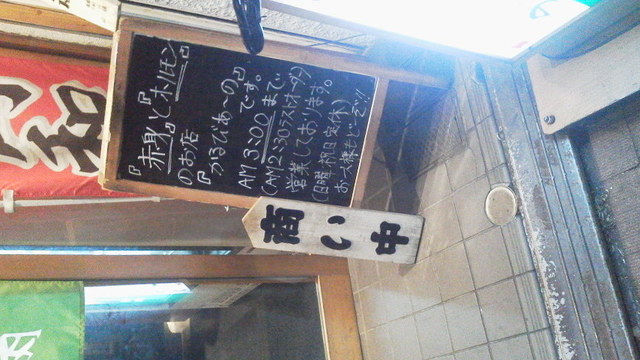 『赤身』と『ホルモン』
のお店
『かるびあ〜の』
です。
AM3:00まで
(AM2:30ラストオーダー)
営業しております。
(日曜・祝日定休)
お一人様もどーぞ!!
商い中
和